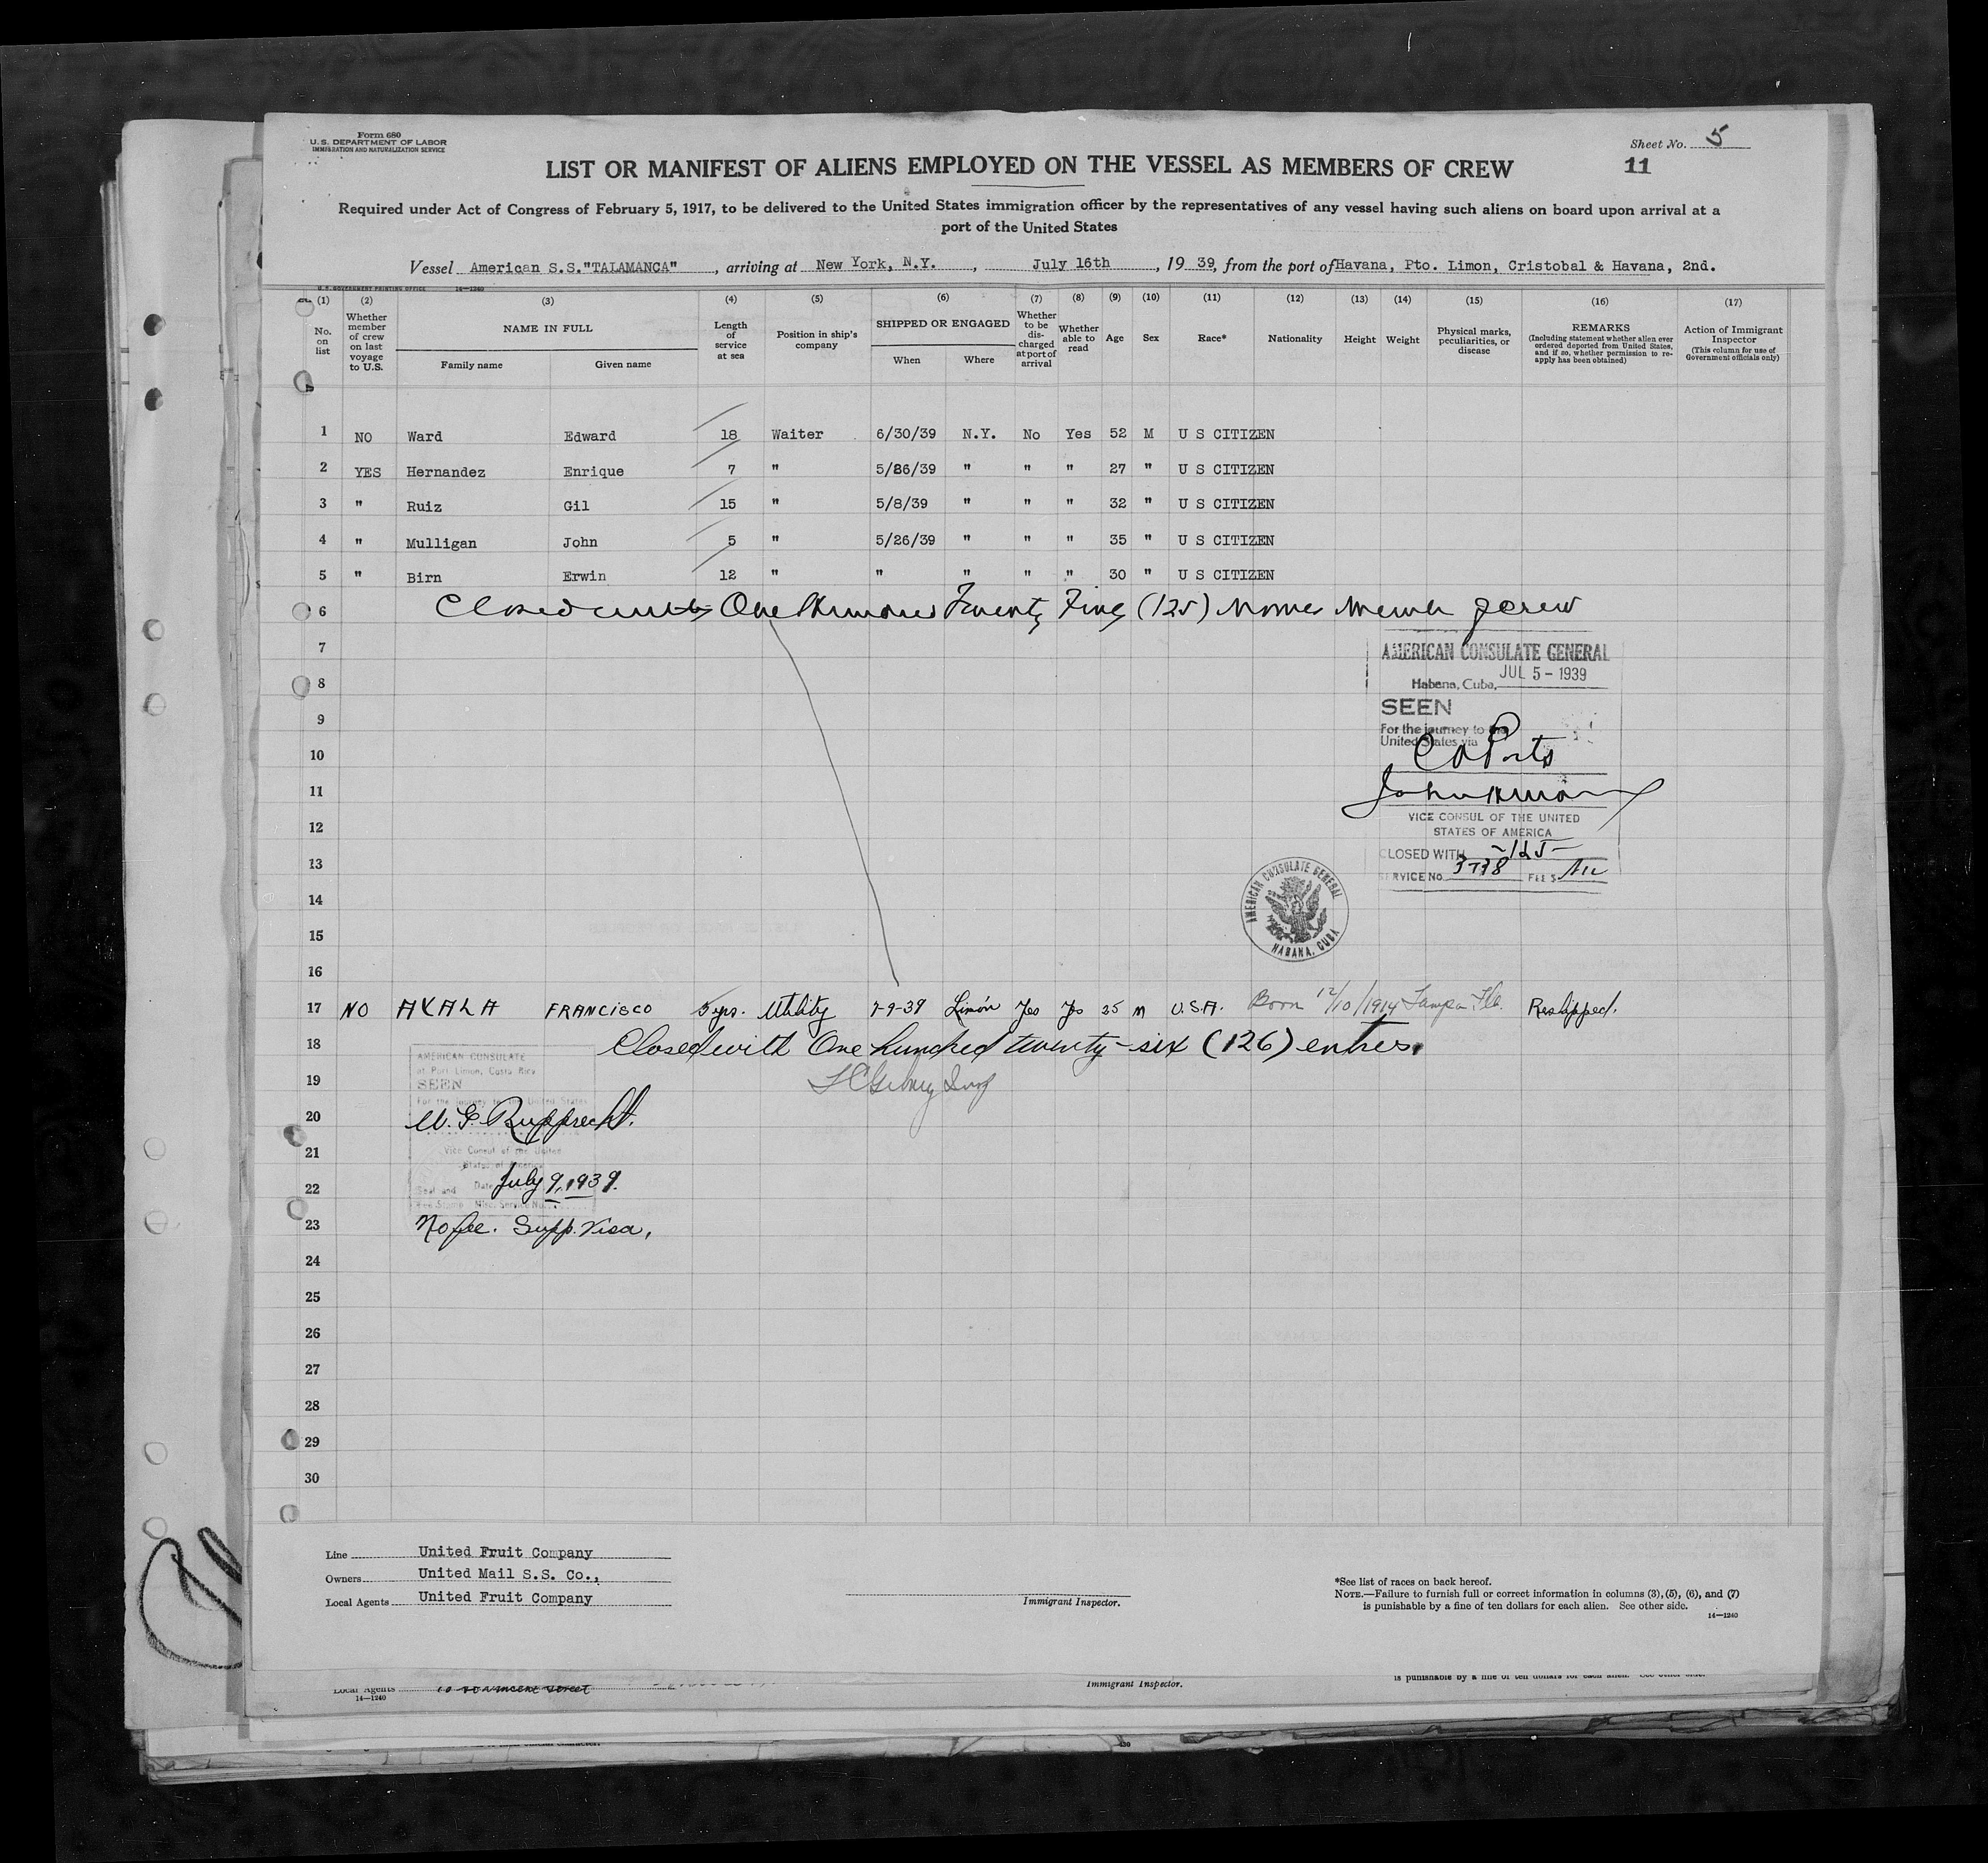 Form 680
U. S. DEPARTMENT OF LABOR
IMMIGRATION AND NATURALIZATION SERVICE
Sheet No. 5
11
LIST OR MANIFEST OF ALIENS EMPLOYED ON THE VESSEL AS MEMBERS OF CREW
Required under Act of Congress of February 5, 1917, to be delivered to the United States immigration officer by the representatives of any vessel having such aliens on board upon arrival at a
port of the United States
Vessel American S.S."TALAMANCA", arriving at New York, N.Y., July 16th, 19 39, from the port of Havana, Pto. Limon, Cristobal & Havana, 2nd.
U. S. GOVERNMENT PRINTING OFFICE 14—1240
(1) (2) (3) (4) (5) (6) (7) (8) (9) (10) (11) (12) (13) (14) (15) (16) (17)
No. on list
Whether member of crew on last voyage to U.S.
NAME IN FULL
Family name Given name
Length of service at sea
Position in ship's company
SHIPPED OR ENGAGED
When Where
Whether to be discharged at port of arrival
Whether able to read
Age
Sex
Race*
Nationality
Height
Weight
Physical marks, peculiarities, or disease
REMARKS
(Including statement whether alien ever ordered deported from United States, and if so, whether permission to reapply has been obtained)
Action of Immigrant Inspector
(This column for use of Government officials only)
1 NO Ward Edward 18 Waiter 6/30/39 N.Y. No Yes 52 M U S CITIZEN
2 YES Hernandez Enrique 7 " 5/26/39 " " " 27 " U S CITIZEN
3 " Ruiz Gil 15 " 5/8/39 " " " 32 " U S CITIZEN
4 " Mulligan John 5 " 5/26/39 " " " 35 " U S CITIZEN
5 " Birn Erwin 12 " " " " " 30 " U S CITIZEN
6 Closed with One Hundred Twenty Five (125) names members of crew
7
AMERICAN CONSULATE GENERAL
Habana, Cuba, JUL 5 - 1939
8
SEEN
9
For the journey to the
United States via
10
11
12
VICE CONSUL OF THE UNITED
STATES OF AMERICA
13
CLOSED WITH -125-
SERVICE No. FEE $
AMERICAN CONSULATE GENERAL
HABANA, CUBA
14
15
16
17 NO AYALA FRANCISCO 5 yrs. Utility 7-9-39 Limón Yes Yes 25 M U.S.A. Born 12/10/1914 Tampa Fla. Reshipped.
18 Closed with One hundred twenty-six (126) entries.
AMERICAN CONSULATE
at Port Limon, Costa Rica
SEEN
For the journey to the United States
19
20 Rupprecht.
21
Vice Consul of the United
States of America
22 Date July 9, 1939.
Seal and
Fee Stamp Misc. Service No.
23 No fee. Supp. Visa.
24
25
26
27
28
29
30
Line United Fruit Company
Owners United Mail S.S. Co.,
Local Agents United Fruit Company
Immigrant Inspector.
*See list of races on back hereof.
NOTE.—Failure to furnish full or correct information in columns (3), (5), (6), and (7)
is punishable by a fine of ten dollars for each alien. See other side.
14—1240
Local Agents
14—1240
Immigrant Inspector.
is punishable by a fine of ten dollars for each alien. See other side.